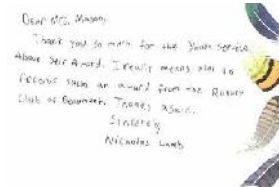 Dear Mrs. Mason,
Thank you so much for the Youth Service
Above Self Award. It really means alot to
receive such an award from the Rotary
Club of Beaumont. Thanks again.
Sincerely
Nicholas Lamb